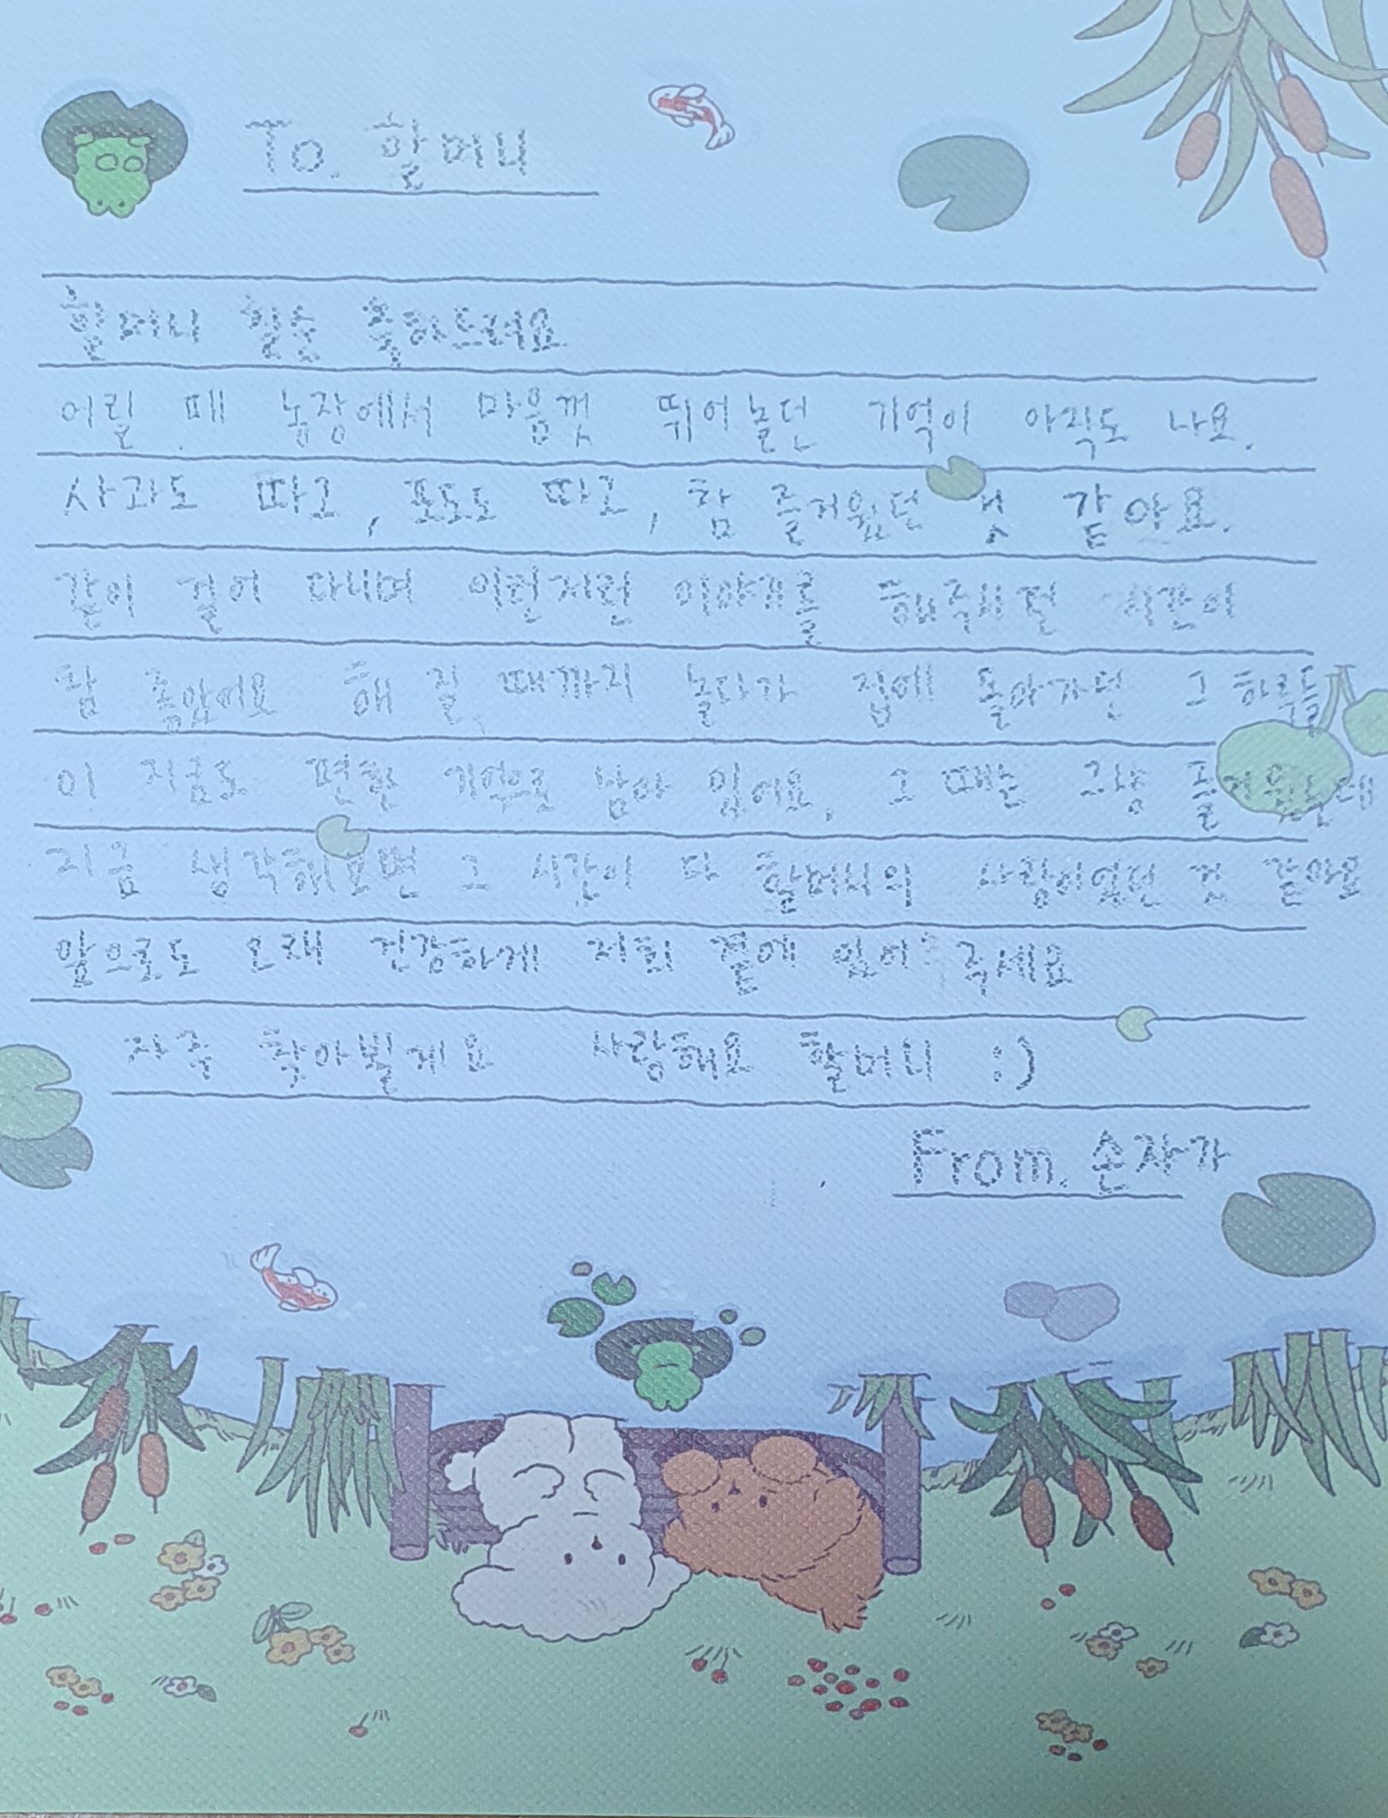 To. 할머니
할머니 칠순 축하드려요
어릴 때 농장에서 마음껏 뛰어놀던 기억이 아직도 나요.
사과도 따고, 포도도 따고, 참 즐거웠던 것 같아요.
같이 걸어 다니며 이런저런 이야기를 해주시던 시간이
참 좋았어요 해 질 때까지 놀다가 집에 돌아가던 그 하루들
이 지금도 편한 기억으로 남아 있어요. 그 때는 그냥 즐거웠는데
지금 생각해보면 그 시간이 다 할머니의 사랑이었던 것 같아요
앞으로도 오래 건강하게 저희 곁에 있어 주세요
자주 찾아뵐게요 사랑해요 할머니 :)
From. 손자가